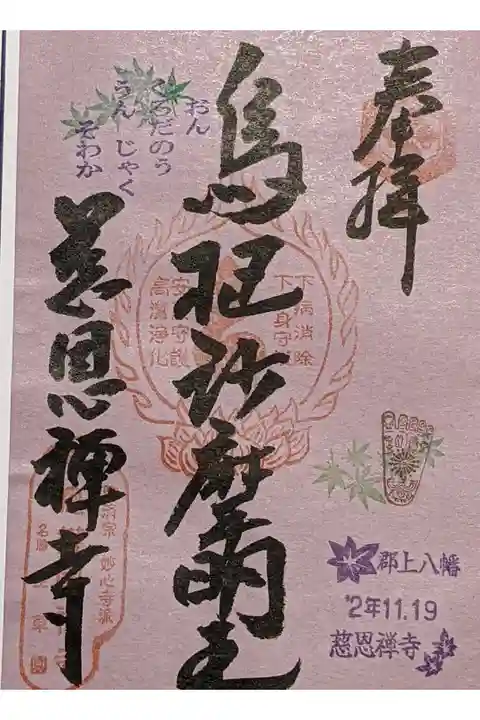 奉拝
烏枢沙摩明王
慈恩禅寺
おん
くろだのう
うん じゃく
そわか
下病消除
下身守
安 守護
高濟浄化
済宗 妙心寺派
郡上八幡
'2年11.19
慈恩禅寺